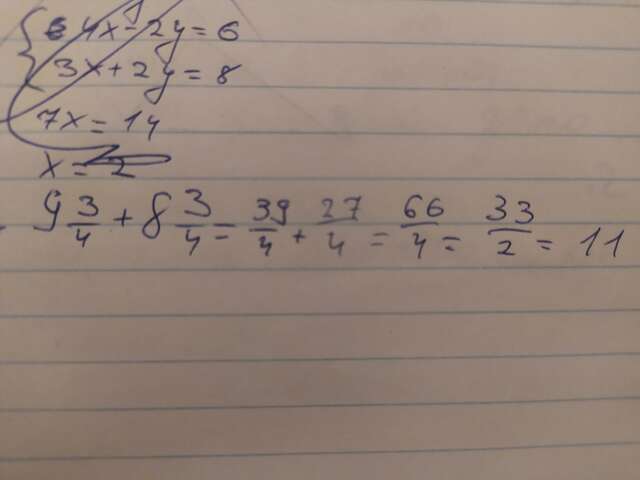 { 4x - 2y = 6
3x + 2y = 8
7x = 14
x = 2
9 3/4 + 8 3/4 = 39/4 + 27/4 = 66/4 = 33/2 = 11